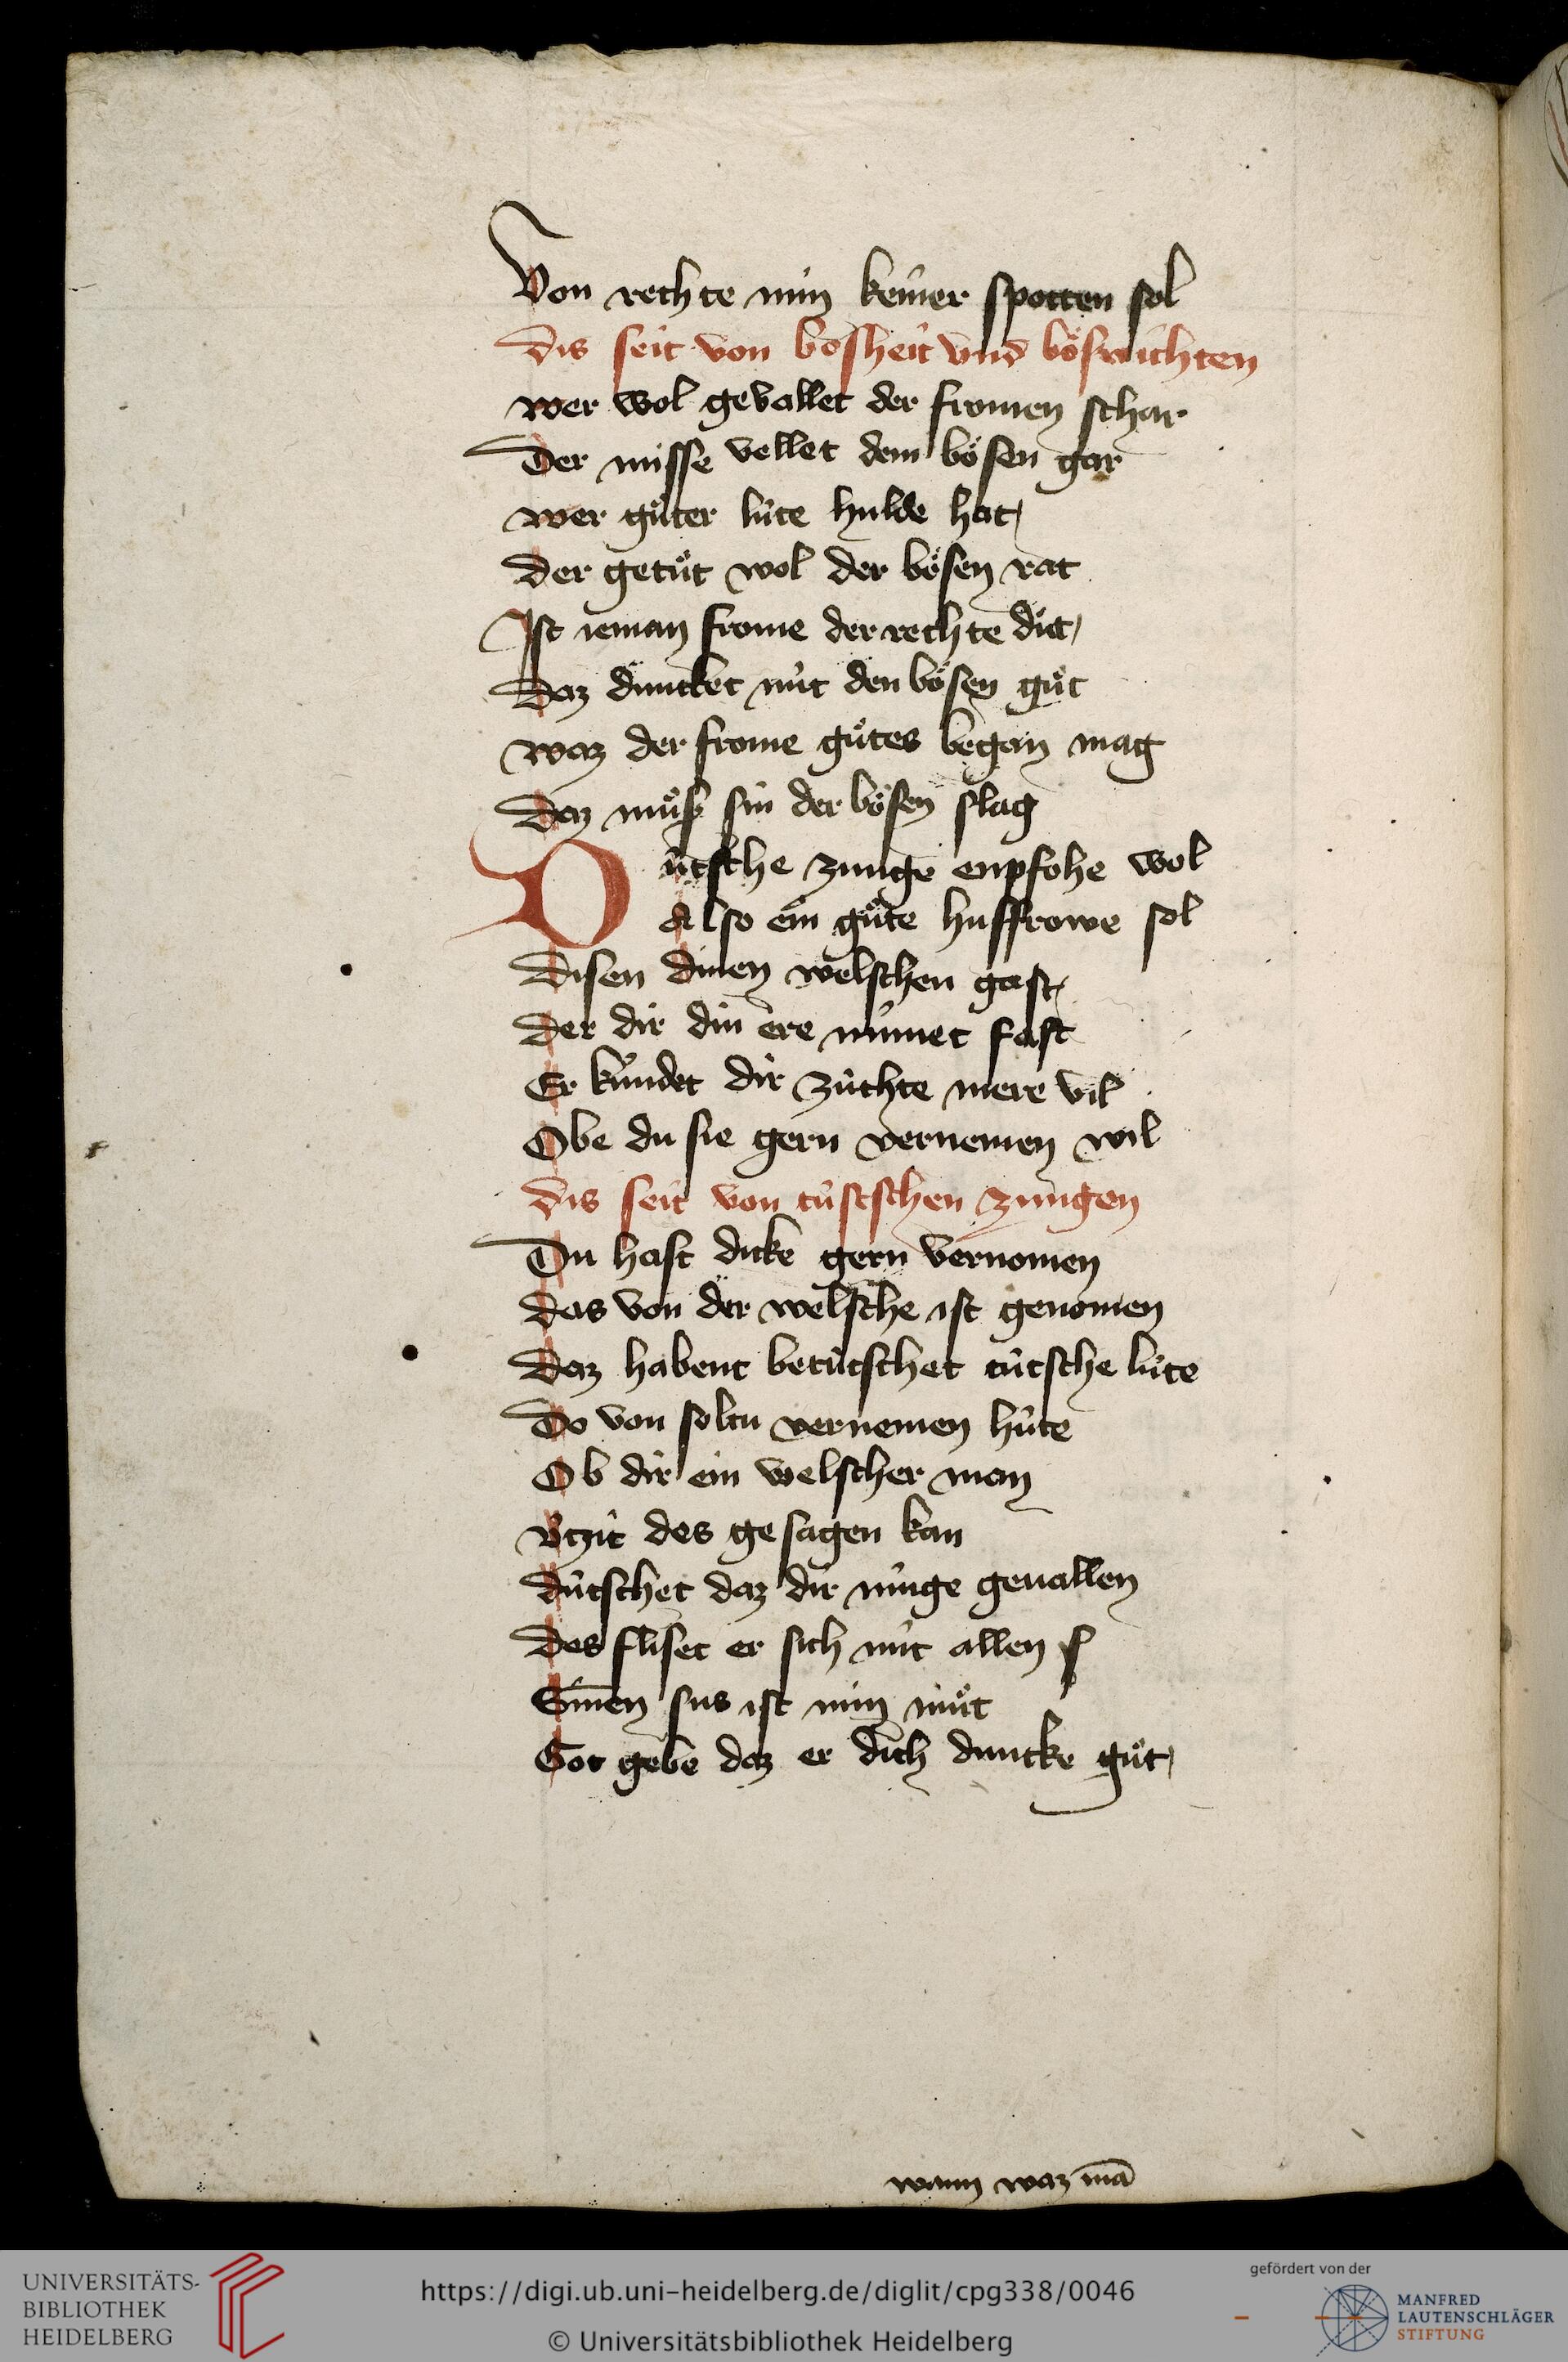 Von rechte min keiner spotten sol
dis seit von bosheit vnd böswichten
wer wol gevallet der fromen schar
Der misse vellet dem bösen gar
wer gůter lúte hulde hat
der getůt wol der bösen rat
Ist ieman frome der rechte důt
Daz duncket nút den bösen gůt
waz der frome gůtes began mag
Daz můß sin der bösen slag
Dútsche zunge enpfohe wol
Also ein gůte husfrowe sol
Disen dinen welschen gast
der dir din ere mimet fast
Er kúndet dir zúchte mere vil
Obe du sie gern vernemen wil
dis seit von tústschen zungen
Du hast dicke gern vernomen
das von der welsche ist genomen
Daz habent betútschet tútsche lúte
Do von soltu vernemen húte
Ob dir ein welscher man
vtzit des gesagen kan
dútschet daz dir múge geuallen
des fliset er sich mit allen
Sinen sus ist min můt
Got gebe daz er dich duncke gůt
wann waz mā
UNIVERSITÄTS-
BIBLIOTHEK
HEIDELBERG
https://digi.ub.uni-heidelberg.de/diglit/cpg338/0046
© Universitätsbibliothek Heidelberg
gefördert von der
MANFRED
LAUTENSCHLÄGER
STIFTUNG